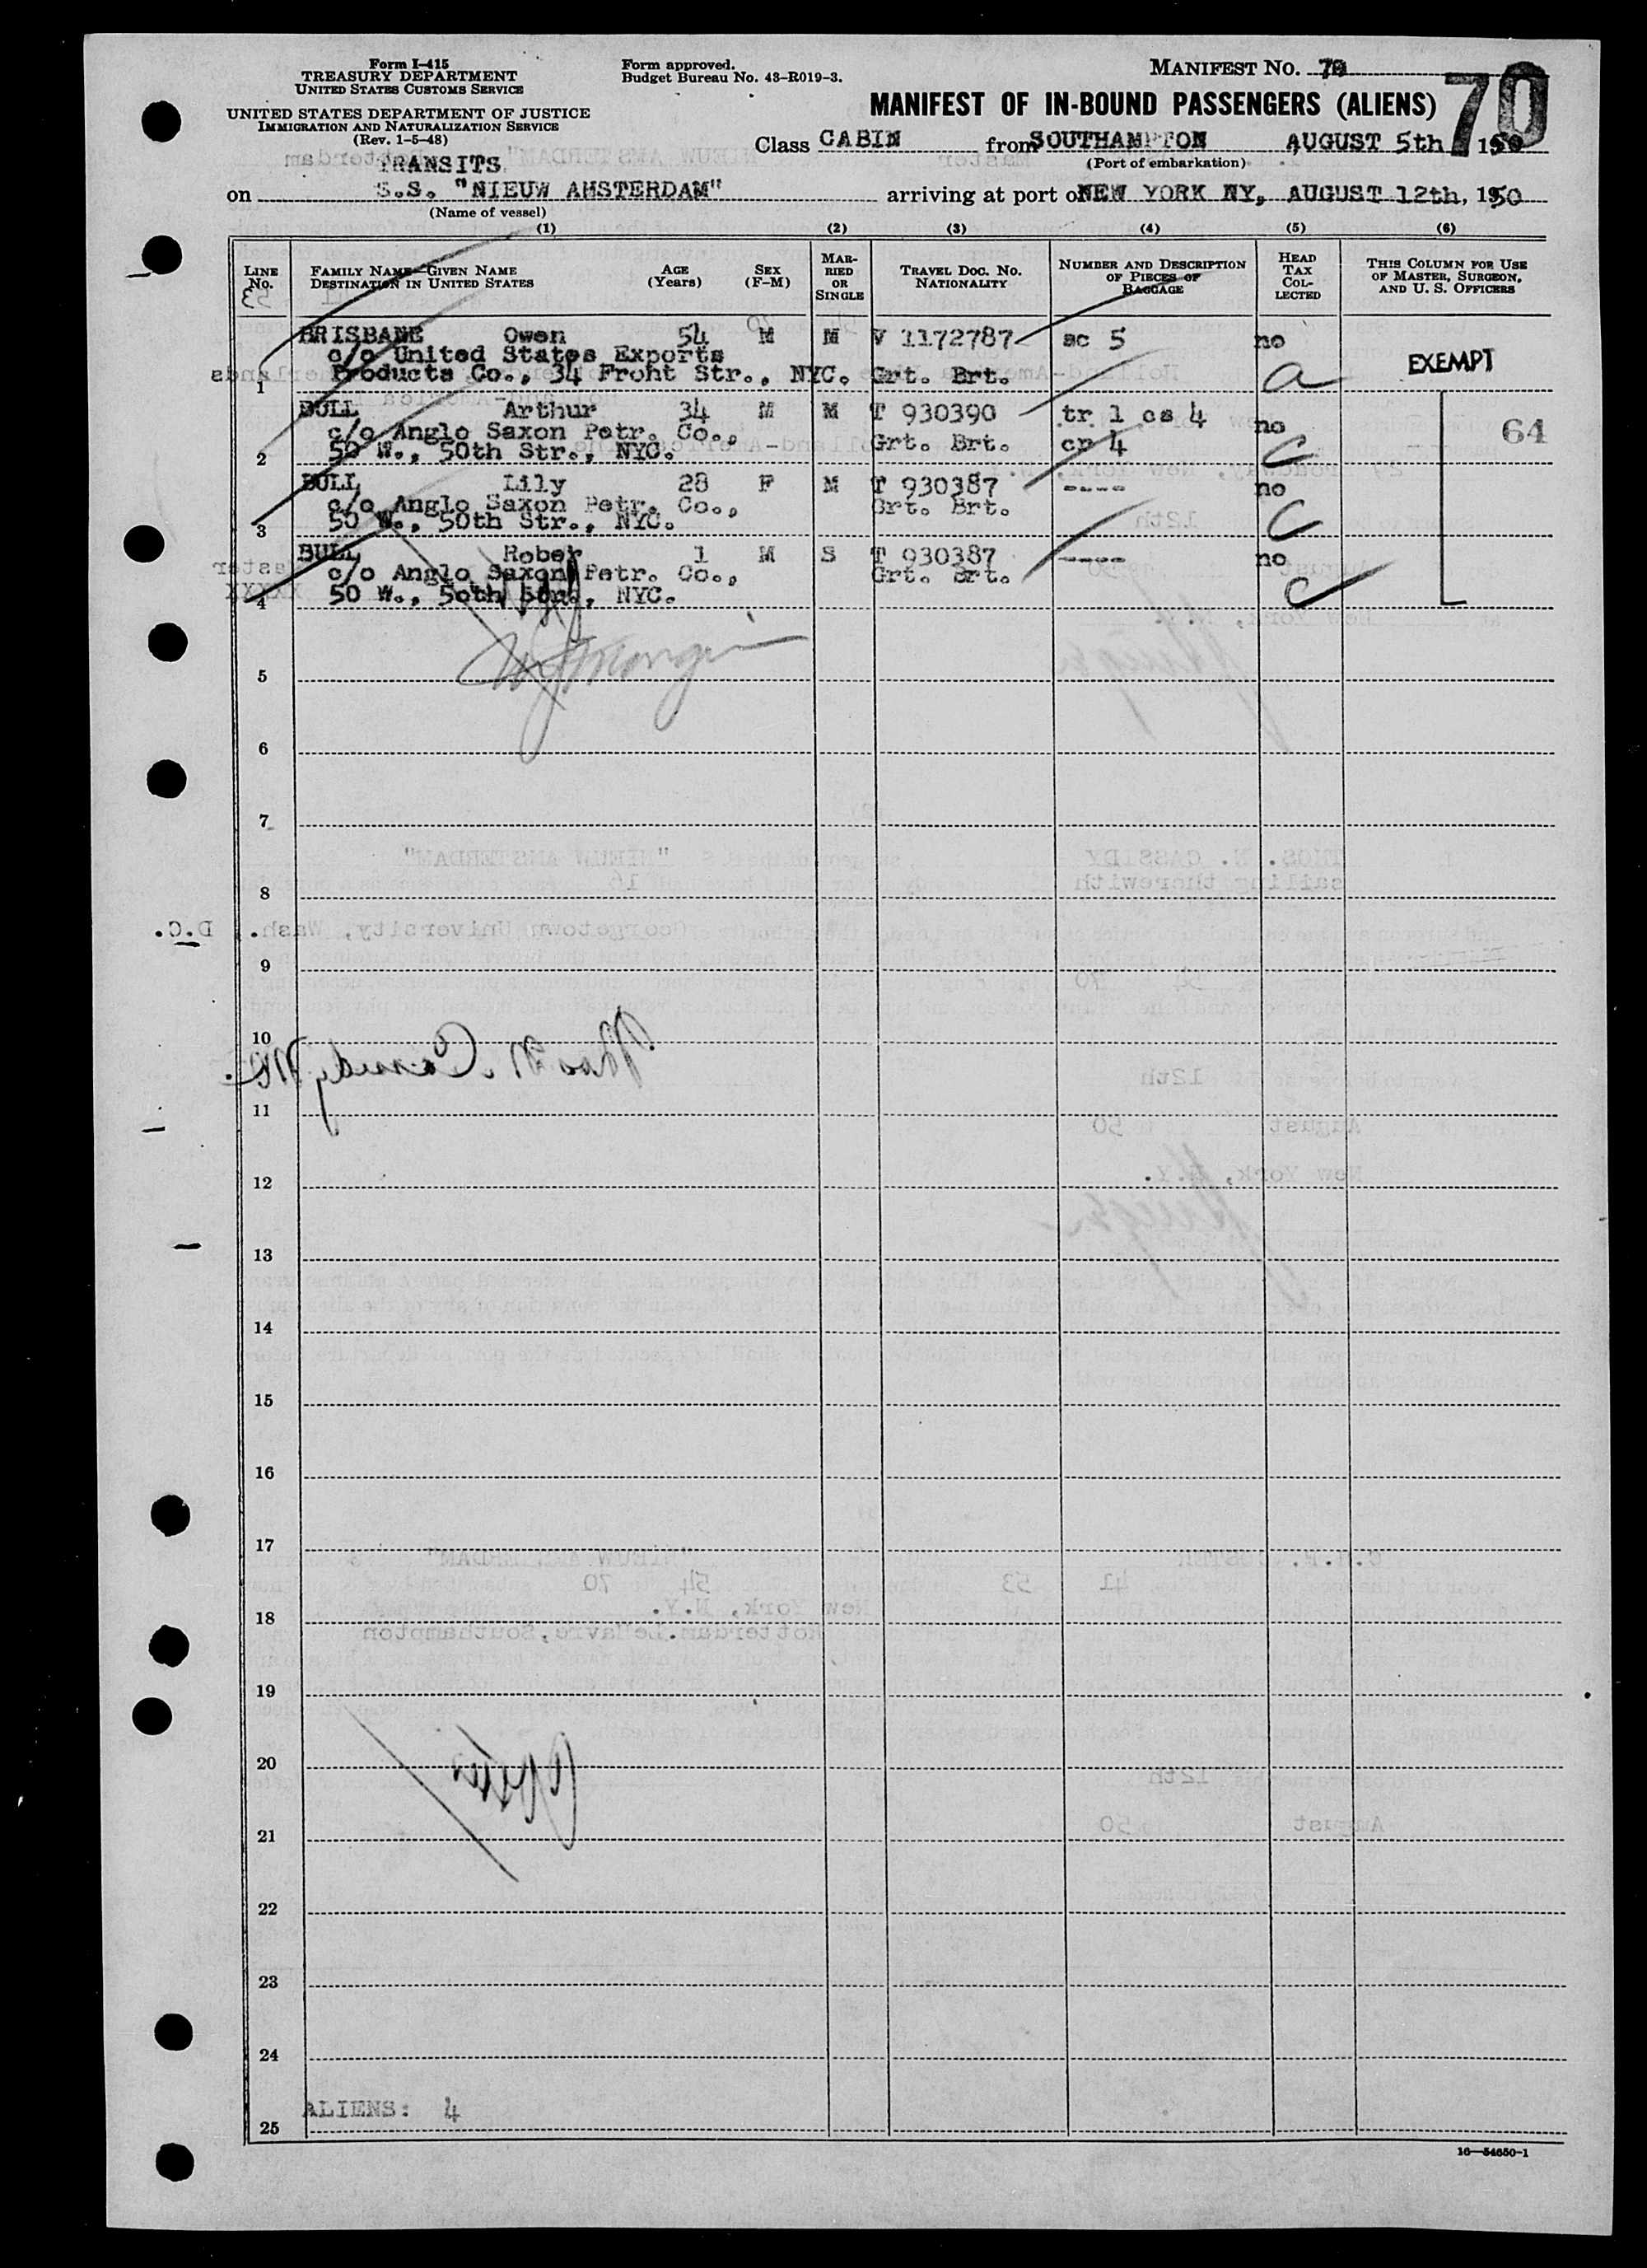 Form I-415
TREASURY DEPARTMENT
UNITED STATES CUSTOMS SERVICE
UNITED STATES DEPARTMENT OF JUSTICE
IMMIGRATION AND NATURALIZATION SERVICE
(Rev. 1-5-48)
Form approved.
Budget Bureau No. 43-R019-3.
MANIFEST NO. 70
70
MANIFEST OF IN-BOUND PASSENGERS (ALIENS)
Class CABIN from SOUTHAMPTON AUGUST 5th 1950
(Port of embarkation)
TRANSITS
on S.S. "NIEUW AMSTERDAM" arriving at port of NEW YORK NY, AUGUST 12th, 1950
(Name of vessel)
(1) (2) (3) (4) (5) (6)
LINE No. FAMILY NAME—GIVEN NAME DESTINATION IN UNITED STATES AGE (Years) SEX (F-M) MARRIED OR SINGLE TRAVEL DOC. NO. NATIONALITY NUMBER AND DESCRIPTION OF PIECES OF BAGGAGE HEAD TAX COLLECTED THIS COLUMN FOR USE OF MASTER, SURGEON, AND U. S. OFFICERS
BRISBANE Owen 54 M M V 1172787 sc 5 no
c/o United States Exports EXEMPT
1 Products Co., 34 Froht Str., NYC. Grt. Brt. a
BULL Arthur 34 M M T 930390 tr 1 cs 4 no 64
c/o Anglo Saxon Petr. Co., Grt. Brt. cr 4
2 50 W., 50th Str., NYC. C
BULL Lily 28 F M T 930387 ---- no
c/o Anglo Saxon Petr. Co., Grt. Brt.
3 50 W., 50th Str., NYC. C
BULL Rober 1 M S T 930387 ---- no
c/o Anglo Saxon Petr. Co., Grt. Brt.
4 50 W., 50th Str., NYC. C
5
6
7
8
9
10
11
12
13
14
15
16
17
18
19
20
21
22
23
24
ALIENS: 4
25
16—54650-1